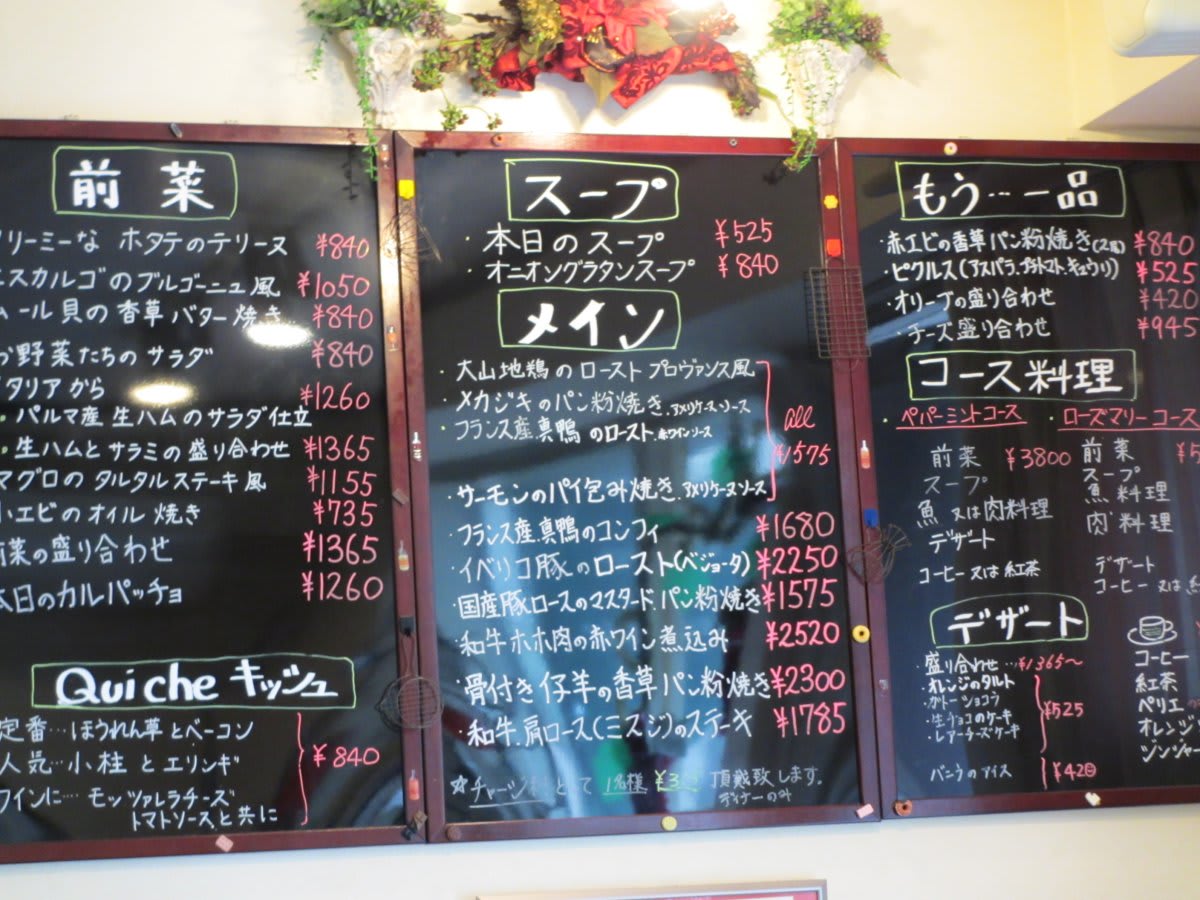 前菜
リーミーな ホタテのテリーヌ ¥840
スカルゴのブルゴーニュ風 ¥1050
ール貝の香草バター焼き ¥840
野菜たちのサラダ ¥840
タリアから
・パルマ産 生ハムのサラダ仕立 ¥1260
・生ハムとサラミの盛り合わせ ¥1365
マグロのタルタルステーキ風 ¥1155
エビのオイル焼き ¥735
前菜の盛り合わせ ¥1365
本日のカルパッチョ ¥1260
Quiche キッシュ
定番…ほうれん草とベーコン
人気…小柱とエリンギ ¥840
ワインに…モッツァレラチーズ
トマトソースと共に
スープ
・本日のスープ ¥525
・オニオングラタンスープ ¥840
メイン
・大山地鶏のロースト プロヴァンス風
・メカジキのパン粉焼き.アメリケーヌソース
・フランス産真鴨のロースト.赤ワインソース
all
¥1575
・サーモンのパイ包み焼き.アメリケーヌソース
・フランス産真鴨のコンフィ ¥1680
・イベリコ豚のロースト(ベジョータ) ¥2250
・国産豚ロースのマスタード.パン粉焼き ¥1575
・和牛ホホ肉の赤ワイン煮込み ¥2520
・骨付き仔羊の香草パン粉焼き ¥2300
・和牛.肩ロース(ミスジ)のステーキ ¥1785
☆チャージ料として 1名様 頂戴致します。
ディナーのみ
もう…一品
・赤エビの香草パン粉焼き(2尾) ¥840
・ピクルス(アスパラ.プチトマト.キュウリ) ¥525
・オリーブの盛り合わせ ¥420
・チーズ盛り合わせ ¥945
コース料理
・ペパーミントコース
前菜 ¥3800
スープ
魚又は肉料理
デザート
コーヒー又は紅茶
・ローズマリーコース
前菜 ¥5
スープ
魚料理
肉料理
デザート
コーヒー又は
デザート
・盛り合わせ…¥1365〜
・オレンジのタルト
・ガトーショコラ
・生チョコのケーキ
・レアーチーズケーキ
¥525
バニラのアイス ¥420
コーヒー
紅茶
ペリエ
オレンジ
ジンジャ